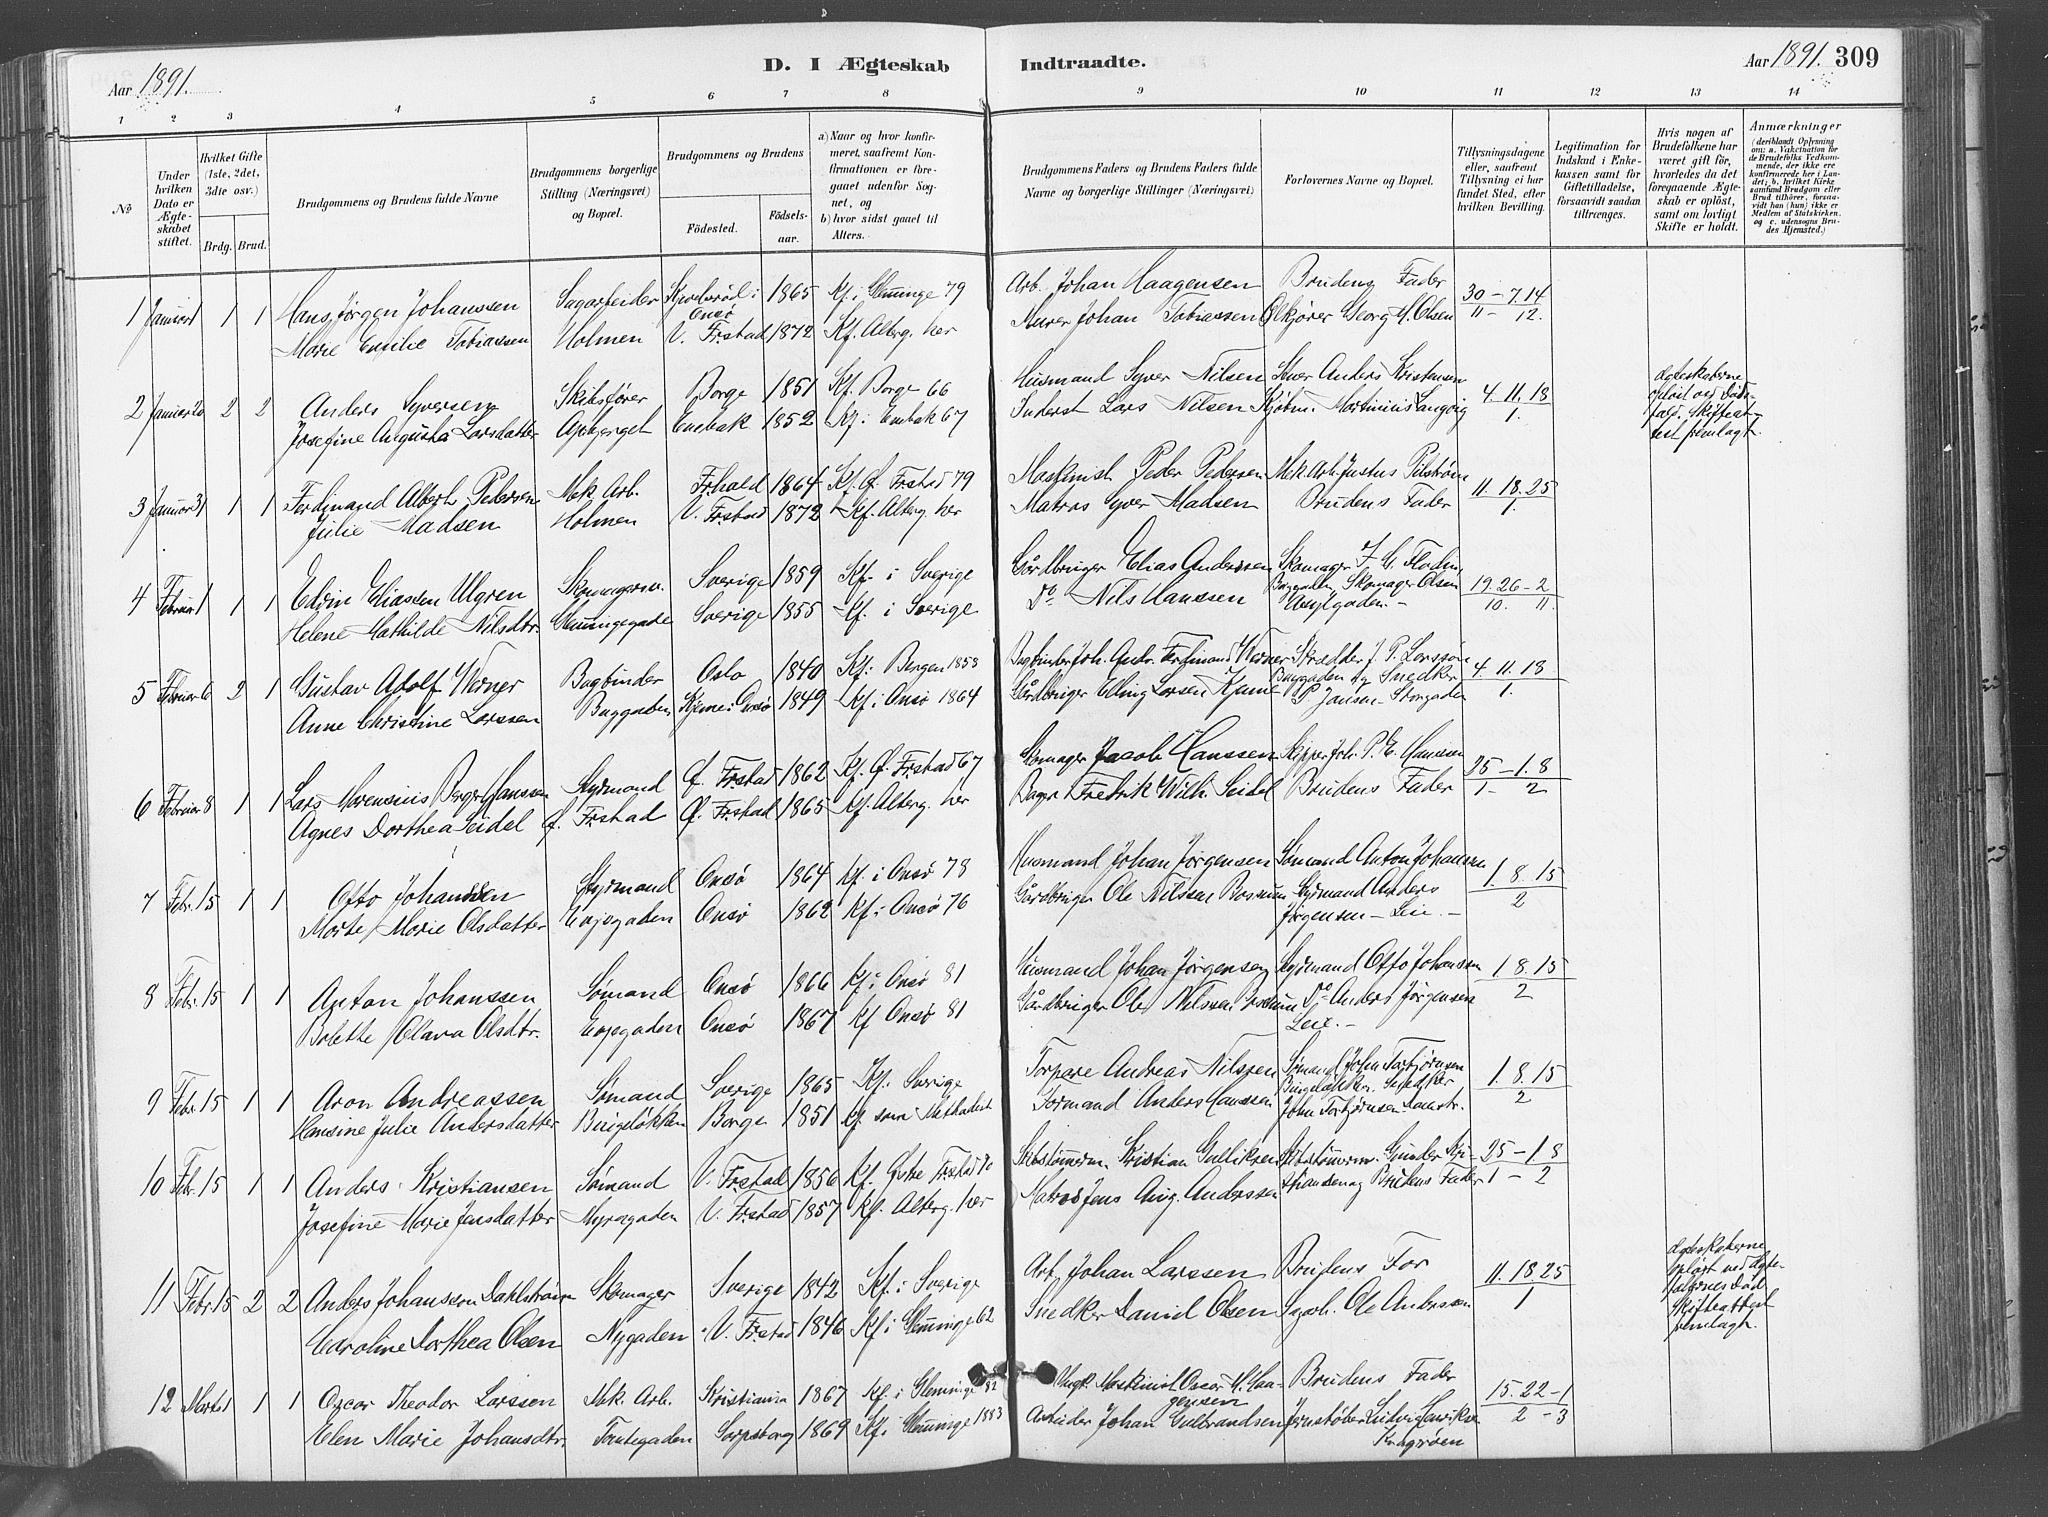 Aar 1891.
D. I Ægteskab
Indtraadte.
Aar 1891. 309
1 2 3 4 5 6 7 8 9 10 11 12 13 14
No
Under hvilken Dato er Ægteskabet stiftet.
Hvilket Gifte (1ste, 2det, 3dte osv.)
Brdg. Brud.
Brudgommens og Brudens fulde Navne
Brudgommens borgerlige Stilling (Næringsvei) og Bopæl.
Brudgommens og Brudens
Fødested. Fødselsaar.
a) Naar og hvor konfirmeret, saafremt Konfirmationen er foregaaet udenfor Sognet, og
b) hvor sidst gaaet til Alters.
Brudgommens Faders og Brudens Faders fulde Navne og borgerlige Stillinger (Næringsvei)
Forlovernes Navne og Bopæl.
Tillysningsdagene eller, saafremt Tillysning ei har fundet Sted, efter hvilken Bevilling.
Legitimation for Indskud i Enkekassen samt for Giftetilladelse, forsaavidt saadan tiltrænges.
Hvis nogen af Brudefolkene har været gift før, hvorledes da det foregaaende Ægteskab er opløst, samt om lovligt Skifte er holdt.
Anmærkninger
(deriblandt Oplysning om: a. Vakcination for de Brudefolks Vedkommende, der ikke ere konfirmerede her i Landet; b. hvilket Kirkesamfund Brudgom eller Brud tilhører, forsaavidt han (hun) ikke er Medlem af Statskirken, og c. udensogns Brudes Hjemsted.)
1 Januar 1 1 1 Hans Jørgen Johanssen Sagarbeider i 1865 Kf. i Glemminge 79 Arb. Johan Haagensen Brudens Fader 30 – 7. 14
Onsø
Marie Emilie Tobiassen Holmen V. Frstad 1872 Kf. Alterg. her Murer Johan Tobiassen Ølkjører Georg M. Olsen 11 – 12.
2 Januar 20 2 2 Anders Syversen Skibsfører Borge 1851 Kf. Borge 66 Husmand Syver Nilsen Anders Kristensen 4. 11. 18
Josefine Augusta Larsdatter Enebak 1852 Kf. i Enebak 67 Inderst Lars Nilsen Kjøbm. Martinius Langvig 1.
Ægteskaberne
opløst ved Døds-
fald. Skifteat-
test fremlagt.
3 Januar 31 1 1 Ferdinand Albert Pedersen Mek. Arb. Frhald 1864 Kf. Ø. Frstad 79 Maskinist Peder Pedersen Mek. Arb. Justus Pilstrøm 11. 18. 25
Julie Madsen Holmen V. Frstad 1872 Kf. Alterg. her Matros Syver Madsen Brudens Fader 1.
4 Februar 1 1 1 Edvin Eliassen Ulgren Skomagersv. Sverige 1859 Kf. i Sverige Gårdbruger Elias Anderssen Skomager F. C. Flodin, 19. 26 – 2
Helene Mathilde Nilsdtr. Glemmegade Sverige 1855 Kf. i Sverige Do Nils Hanssen Baggaden, Skomager Olsen 10. 11.
Asylgaden. –
5 Februar 6 2 1 Gustav Adolf Werner Bogbinder Oslo 1840 Kf. i Bergen 1858 Bogbinder Joh. Andr. Ferdinand Werner Skrædder J. P. Larssøn 4. 11. 18
Anne Christine Larssen Baggaden Kjerne i Onsø 1849 Kf. i Onsø 1864 Gårdbruger Elling Larsen Kjerne Baggaden og Snedker 1.
P. Jansen – Storgaden
6 Februar 8 1 1 Lars Berger Hanssen Styrmand Ø. Frstad 1862 Kf. Ø. Frstad 67 Skomager Jacob Hanssen Skipper Joh. P. E. Hanssen 25 – 1. 8
Agnes Dorthea Seidel Ø. Frstad Ø. Frstad 1865 Kf. Alterg. her Bager Fredrik Wilh. Seidel Brudens Fader 1 – 2
7 Febr. 15 1 1 Otto Johanssen Styrmand Onsø 1864 Kf. i Onsø 78 Husmand Johan Jørgensen Sømand Anton Johanssen 1. 8. 15
Marte Marie Olsdatter Onsø 1862 Kf. i Onsø 76 Gårdbruger Ole Nilssen Styrmand Anders 2
Jørgensen – Leie. –
8 Febr. 15 1 1 Anton Johanssen Sømand Onsø 1866 Kf. i Onsø 81 Husmand Johan Jørgensen Styrmand Otto Johanssen 1 8. 15
Bolette Clara Olsdtr. Onsø 1867 Kf Onsø 81 Gårdbruger Ole Nilssen Do Anders Jørgensen 2
Leie. –
9 Febr. 15 1 1 Aron Andreassen Sømand Sverige 1865 Kf. i Sverige Torpare Andreas Nilssen Sømand John Torbjørnsen 1. 8. 15
Hansine Julie Andersdatter Bingeløkken Borge 1851 Kf. som Methodist Formand Anders Hanssen Bingeløkken. Snedker 2
John Torbjørnsen Damstr.
10 Febr. 15 1 1 Anders Kristiansen Sømand V. Frstad 1856 Kf. Østre Frstad 70 Skibstømmerm. Kristian Gulliksen Skibstømmerm. Gunder Kri- 25 – 1 8
Josefine Marie Jensdatter Myragaden V. Frstad 1857 Kf. Alterg. her Matros Jens Aug. Anderssen stiansen og Brudens Fader 1 – 2
11 Febr. 15 2 2 Anders Johansson Dahlstrøm Skomager Sverige 1842 Kf. i Sverige Arb. Johan Larssen Brudens Far 11. 18. 25
Caroline Dorthea Olsen Nygaden V. Frstad 1846 Kf. i Glemminge 62 Snedker Daniel Olsen Sagarb. Ole 1
Ægteskaberne
opløst ved Ægte-
fællernes Død
Skifteattest
fremlagt.
12 Marts 1 1 1 Oscar Theodor Larssen Mek. Arb. Kristiania 1867 Kf. i Glemminge 82 Ungk. Maskinist Oscar M. Haa- Brudens Fader 15. 22 – 1
gensen
Elen Marie Johansdtr. Tomtegaden Sarpsborg 1869 Kf. i Glemminge 1883 Arbeider Johan Gulbrandsen Jernstøber Ludvig Henriksen 2 – 3